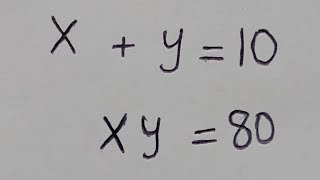 x + y = 10
xy = 80